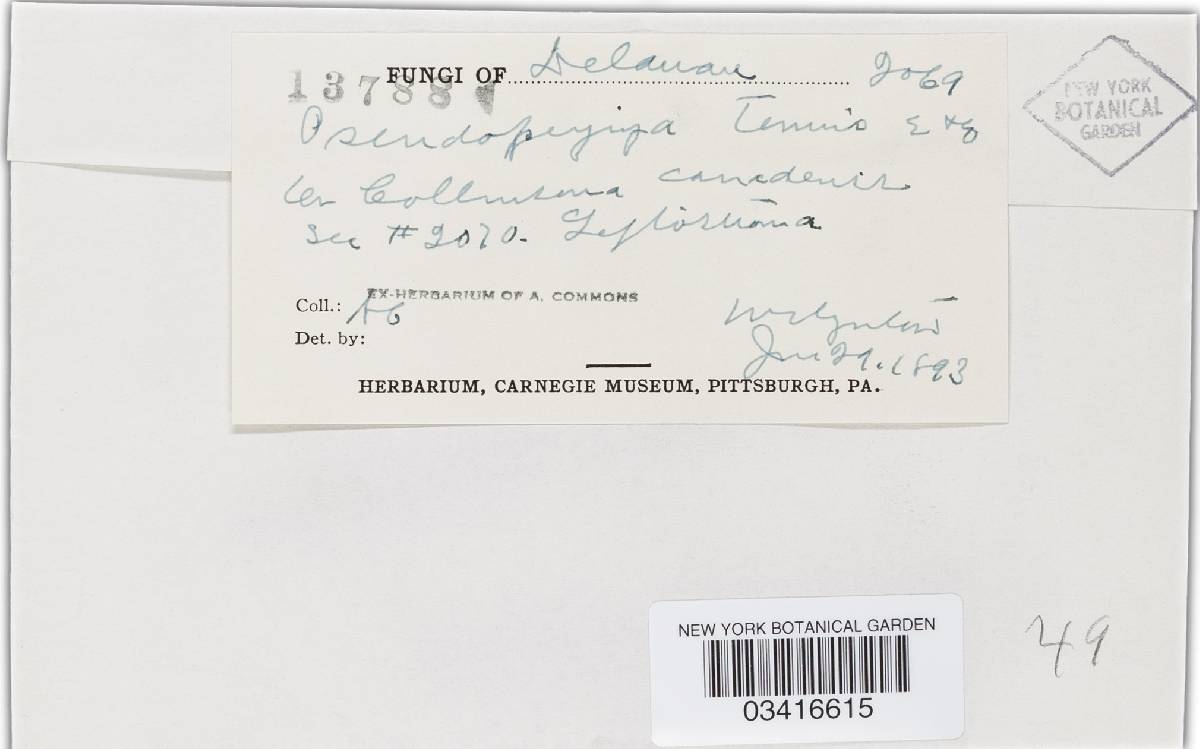 FUNGI OF Delaware 2069
13788
Pseudopeziza Tenuis E & E
on Collinsonia canadensis
See # 2070. Leptostroma
EX-HERBARIUM OF A. COMMONS
Coll.: AC
Wilmington
Det. by:
Jan 29. 1893
HERBARIUM, CARNEGIE MUSEUM, PITTSBURGH, PA.
NEW YORK
BOTANICAL
GARDEN
NEW YORK BOTANICAL GARDEN
03416615
49